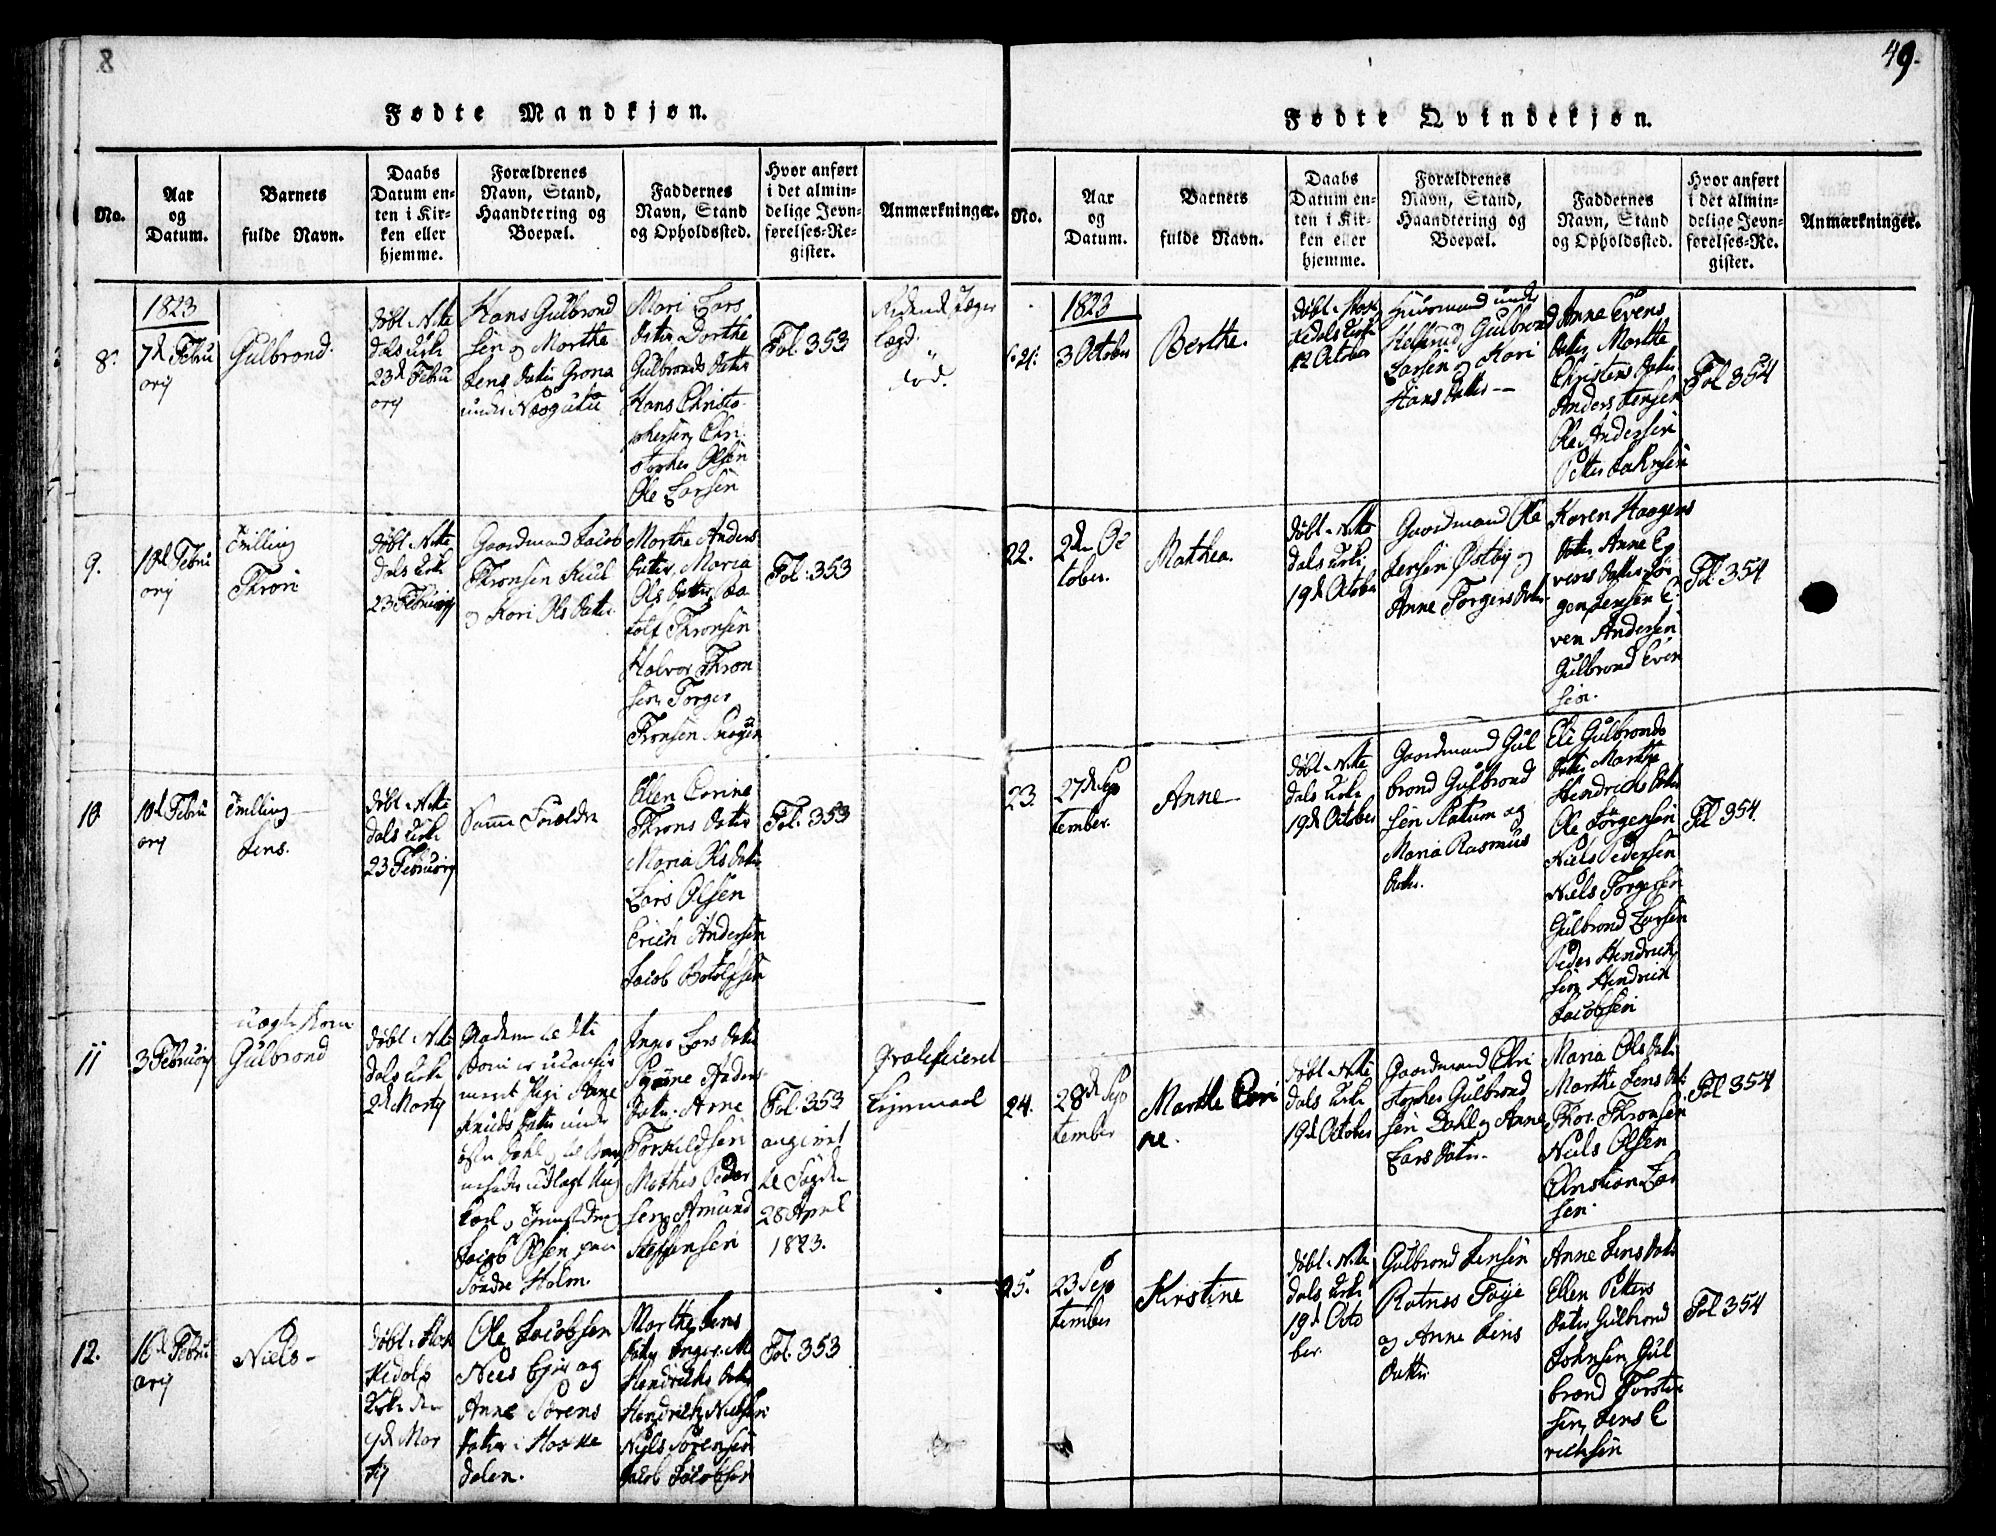 8
49.
Fødte Mandkjøn.
No.
Aar
og
Datum.
Barnets
fulde Navn.
Daabs
Datum en-
ten i Kir-
ken eller
hjemme.
Forældrenes
Navn, Stand,
Haandtering og
Boepæl.
Faddernes
Navn, Stand
og Opholdssted.
Hvor anført
i det almin-
delige Jevn-
førelses-Re-
gister.
Anmærkninger.
8.
1823
7d Febru
ary
Gulbrond.
døbt i Nitte
dals Kirke
23d Febru
ary
Hans Gulbrond
sen og Marthe
Jens datter
under
Mari Lars
datter Dorthe
Gulbronds datter
Hans Christo-
phersen Chri
stopher Olsen
Ole Larsen
Fol. 353
Ridende Jæger
Lægd.
"
død.
9.
10d Febru
ary
Tvilling
Thron
døbt i Nitte
dals Kirke
23 February
Gaardmand Jacob
Thronsen
og Kari Ols datter
Marthe Anders
datter, Maria
Ols datter
Thronsen
Halvor Thron
sen, Torger
Thronsen
Fol: 353
10
10d Febru
ary
Tvilling
Jens.
døbt i Nitte
dals Kirke
23 February
Samme Forældre
Ellen Corine
Throns datter
Maria Ols datter
Lars Olsen
Erich Andersen
Jacob Botolfsen
Fol: 353
11
3 February
uægte Søn
Gulbrond
døbt i Nitte
dals Kirke
2d Marty
Moderen til dette
Barn er
Pige Anne
Knuds datter under
Dahl og til Barne
fader udlagt Ung
karl og
Jacob Olsen paa
Søndre Holm.
Inger Lars datter
Anders
datter. Arne
Torkildsen
Mathis Peder
sen, Amund
Steffensen
Fol: 353
angivet
til Fogden
28 April
1823.
Qvalificeret
Leiermaal
12.
16d Febru
ary
Niels-
døbt i Has
kedals
Kirke den
9d Mar
ty
Ole Jacobsen
Nees Eje og
Anne Sørens
datter i Hakke
dalen.
Marthe Jens
datter Inger M
Hendrichs datter
Hendrich Nielsen
Niels Sørensen
Jacob Jacobsen
Fol: 353
Fødte Qvindekjøn.
No.
Aar
og
Datum.
Barnets
fulde Navn.
Daabs
Datum en-
ten i Kir-
ken eller
hjemme.
Forældrenes
Navn, Stand,
Haandtering og
Boepæl.
Faddernes
Navn, Stand
og Opholdssted.
Hvor anført
i det almin-
delige Jevn-
førelses-Re-
gister.
Anmærkninger.
21.
1823
3 October
Berthe.
døbt i Hak
kedals Kirke
12 October
Huusmand under
Gulbrond
Larsen og Kari
Hans datter
Anne Evens
datter, Marthe
Christens datter
Anders Jensen
Ole Andersen
Petter Jahnsen
Fol 354
22.
2den Oc
tober.
Mathea.
døbt i Nitte
dals Kirke
19d October
Gaardmand Ole
Jensen Østby og
Anne Torgers datter
Karen Haagens
datter, Anne E
vens datter, Jør
gen Jensen E
ven Andersen
Gulbrond Even
sen.
Fol: 354
23.
27d Sep
tember.
Anne
døbt i Nitte
dals Kirke
19d October
Gaardmand Gul
brond Gulbrond
sen Slatum og
Maria Rasmus
datter.
Eli Gulbronds
datter Marthe
Hendrichs datter
Ole Jørgensen
Niels Pedersen
Niels Torgersen
Gulbrond Larsen
Peder Hendrich
sen, Hendrich
Jacobsen
Fol 354.
24.
28d Sep
tember
Marthe Cori
ne.
døbt i Nitte
dals Kirke
19d October
Gaardmand Chri
stopher Gulbrond
sen Dahl og Anne
Lars datter
Maria Ols datter
Marthe Jens datter
Thor Thronsen
Niels Olsen
Christian Lar
sen.
Fol 354
25.
23 Sep
tember
Kirstine
døbt i Nitte
dals Kirke
19d Octo
ber.
Gulbrond Jensen
Rotnes Eje
og Anne Jens
datter
Anne Jens datter
Ellen Petters
datter Gulbrond
Johnsen, Gul
brand Torsten
sen, Jens E
richsen
Fol 354